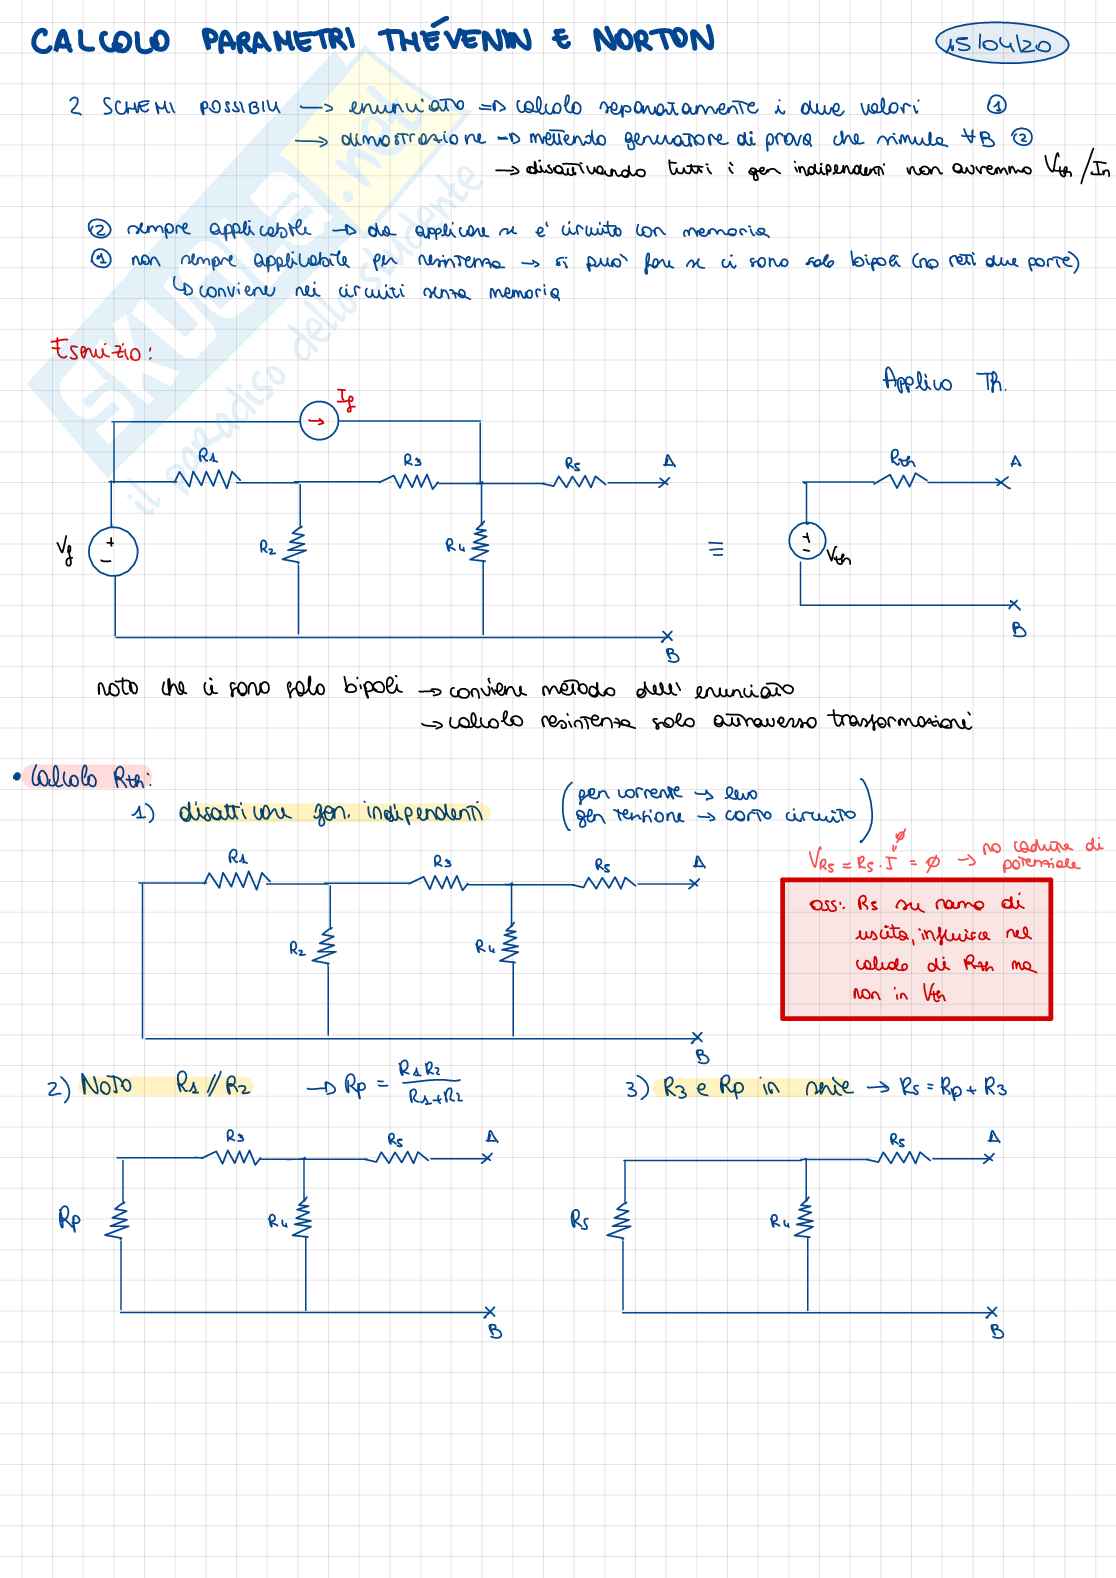 CALCOLO PARAMETRI THÉVENIN E NORTON
15/04/20
2 SCHEMI POSSIBILI → enunciato ⇒ calcolo separatamente i due valori ①
→ dimostrazione → mettendo generatore di prova che simula ∀B ②
→ disattivando tutti i gen indipendenti non avremmo Vth / In
② sempre applicabile → da applicare se e' circuito con memoria
① non sempre applicabile per resistenza → si puo' fare se ci sono solo bipoli (no reti due porte)
↳ conviene nei circuiti senza memoria
Esercizio:
Applico Th.
Ig
R1
R3
R5
A
Rth
A
Vg
+
−
R2
R4
≡
+
−
Vth
B
B
noto che ci sono solo bipoli → conviene metodo dell' enunciato
→ calcolo resistenza solo attraverso trasformazioni
• Calcolo Rth:
1) disattivare gen. indipendenti
(gen corrente → levo
gen tensione → corto circuito)
VR5 = R5 · I = ∅ → no cadute di potenziale
∅
R1
R3
R5
A
R2
R4
B
oss: R5 su ramo di
uscita, influisce nel
calcolo di Rth ma
non in Vth
2) NOTO R1 // R2 → Rp = R1R2 / R1+R2
3) R3 e Rp in serie → Rs = Rp + R3
R3
R5
A
Rp
R4
B
R5
A
Rs
R4
B
SKUOLA.net
il paradiso dello studente